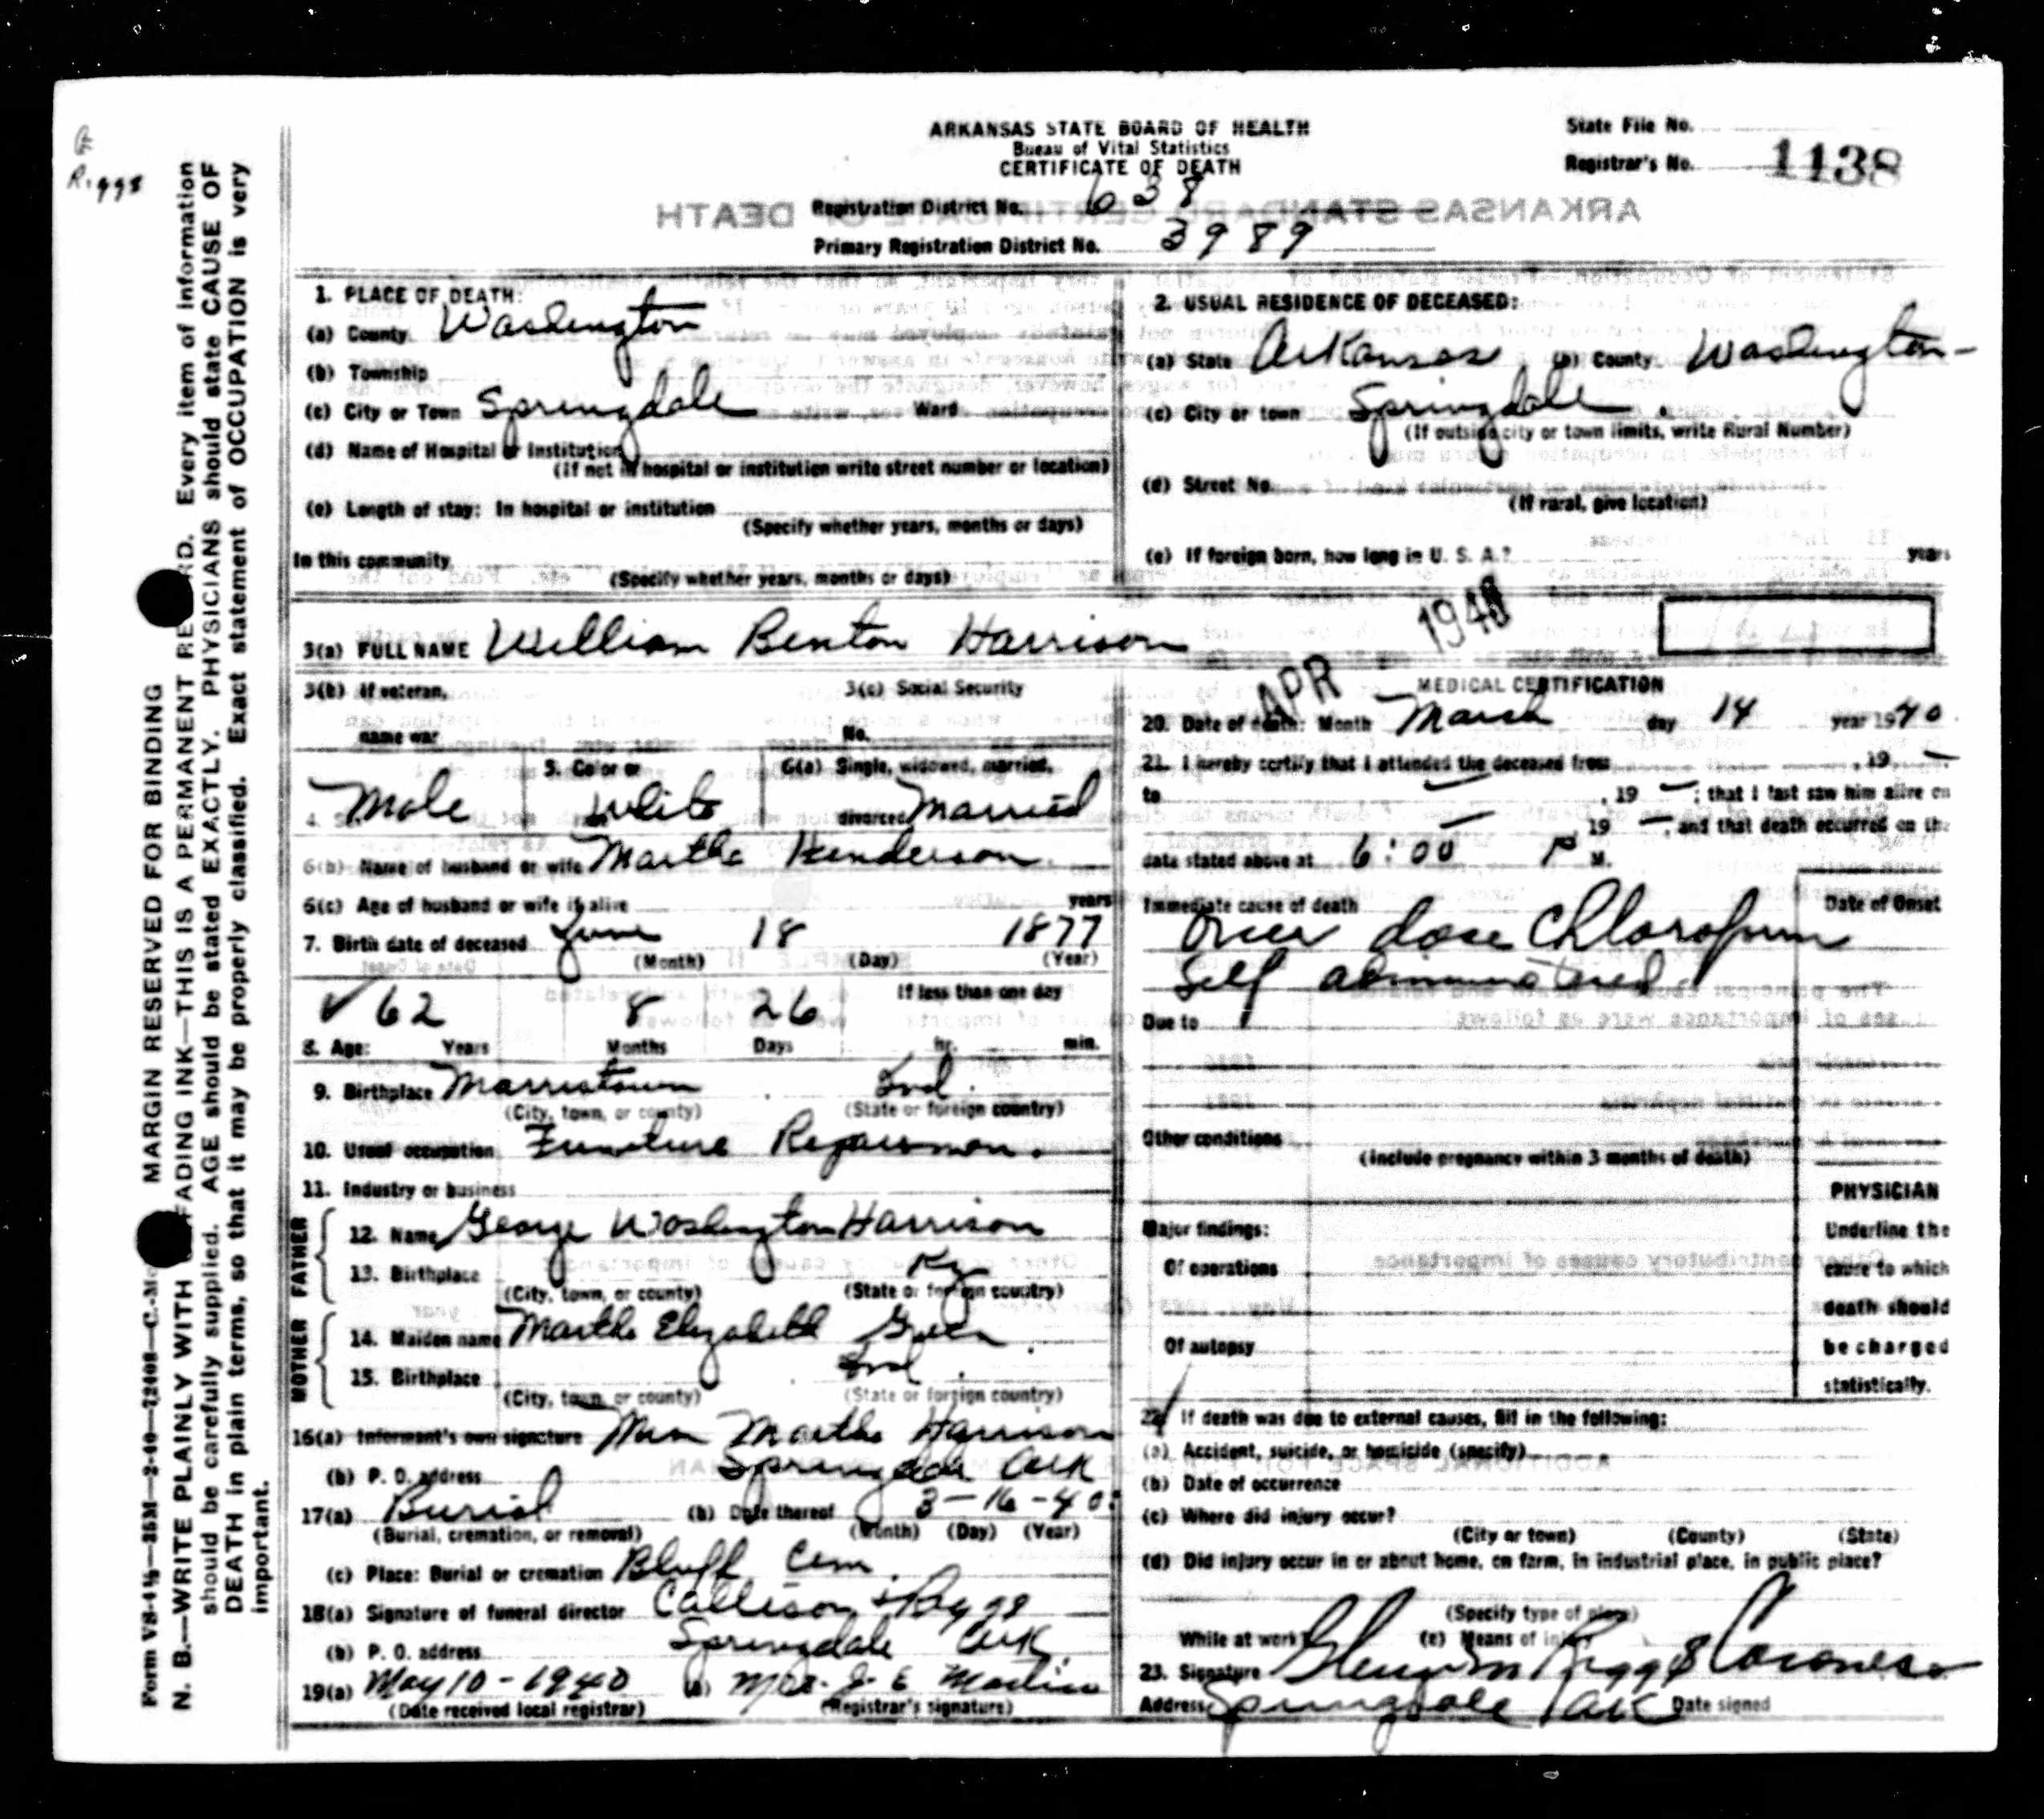 G
Riggs
ARKANSAS STATE BOARD OF HEALTH
Bueau of Vital Statistics
CERTIFICATE OF DEATH
State File No.
Registrar's No. 1138
Registration District No. 638
Primary Registration District No. 3989
1. PLACE OF DEATH:
(a) County Washington
(b) Township
(c) City or Town Springdale Ward
(d) Name of Hospital or Institution
(If not in hospital or institution write street number or location)
(e) Length of stay: In hospital or institution
(Specify whether years, months or days)
In this community
(Specify whether years, months or days)
2. USUAL RESIDENCE OF DECEASED:
(a) State Arkansas (b) County Washington
(c) City or town Springdale
(If outside city or town limits, write Rural Number)
(d) Street No.
(If rural, give location)
(e) If foreign born, how long in U. S. A.? years
3(a) FULL NAME William Benton Harrison
APR 1940
3(b) If veteran, name war
3(c) Social Security No.
4. Male
5. Color or White
6(a) Single, widowed, married, divorced Married
6(b) Name of husband or wife Martha Henderson
6(c) Age of husband or wife if alive years
7. Birth date of deceased June 18 1877
(Month) (Day) (Year)
62 8 26 If less than one day
8. Age: Years Months Days hr. min.
9. Birthplace Morristown Ind.
(City, town, or county) (State or foreign country)
10. Usual occupation Furniture Repairman.
11. Industry or business
FATHER
12. Name George Washington Harrison
13. Birthplace Ky
(City, town, or county) (State or foreign country)
MOTHER
14. Maiden name Martha Elizabeth
15. Birthplace Ind.
(City, town, or county) (State or foreign country)
16(a) Informant's own signature Mrs Martha Harrison
(b) P. O. address Springdale Ark
17(a) Burial (b) Date thereof 3-16-40
(Burial, cremation, or removal) (Month) (Day) (Year)
(c) Place: Burial or cremation Bluff Cem.
18(a) Signature of funeral director Callison & Riggs
(b) P. O. address Springdale Ark
19(a) May 10-1940 (b) Mrs. J. E
(Date received local registrar) (Registrar's signature)
MEDICAL CERTIFICATION
20. Date of death: Month March day 14 year 1940
21. I hereby certify that I attended the deceased from , 19
to , 19 ; that I last saw him alive on
, 19 , and that death occurred on the
date stated above at 6:00 P M.
Immediate cause of death Date of Onset
Over dose Chloroform
Self administered.
Due to
Other conditions
(include pregnancy within 3 months of death)
Major findings:
Of operations
Of autopsy
PHYSICIAN
Underline the
cause to which
death should
be charged
statistically.
22. If death was due to external causes, fill in the following:
(a) Accident, suicide, or homicide (specify)
(b) Date of occurrence
(c) Where did injury occur?
(City or town) (County) (State)
(d) Did injury occur in or about home, on farm, in industrial place, in public place?
(Specify type of place)
While at work (e) Means of injury
23. Signature Glenn M Riggs Coroner
Address Springdale Ark Date signed
MARGIN RESERVED FOR BINDING
N. B.—WRITE PLAINLY WITH UNFADING INK—THIS IS A PERMANENT RECORD. Every item of information
should be carefully supplied. AGE should be stated EXACTLY. PHYSICIANS should state CAUSE OF
DEATH in plain terms, so that it may be properly classified. Exact statement of OCCUPATION is very
important.